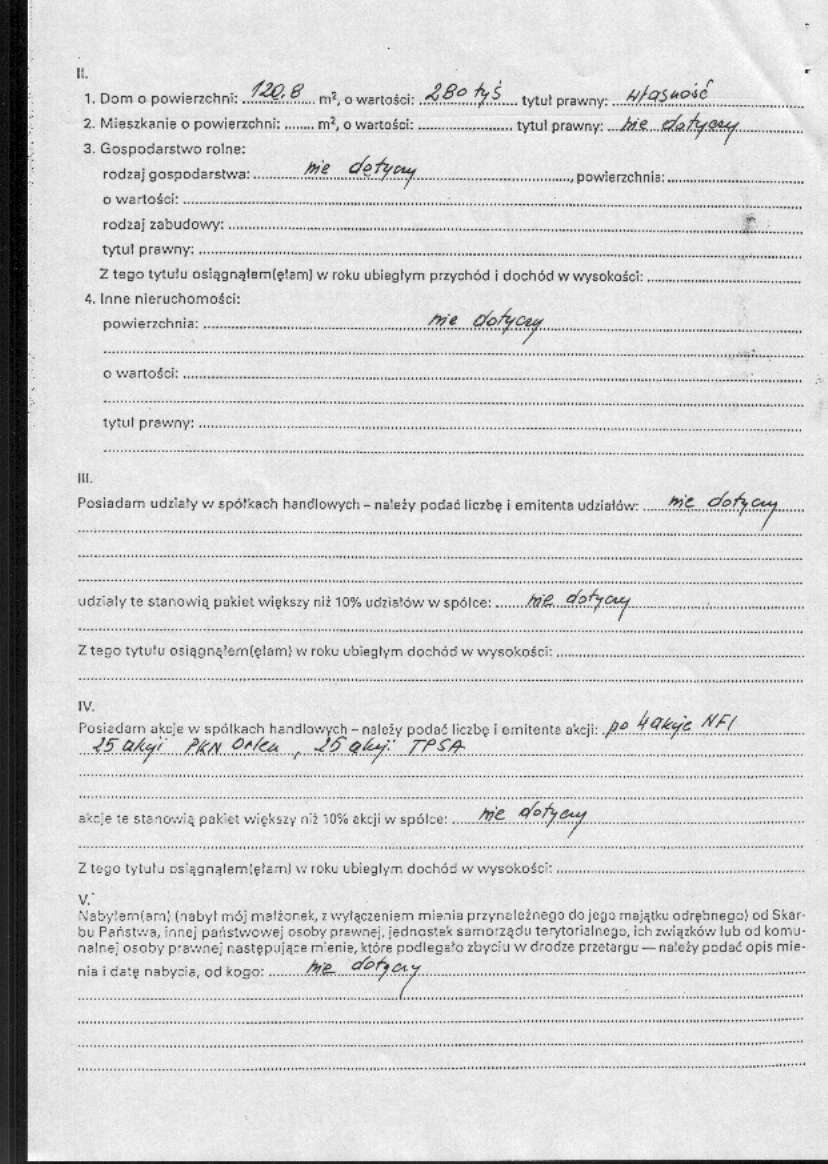 II.
1. Dom o powierzchni: 120,8 m², o wartości: 280 tyś tytuł prawny: własność
2. Mieszkanie o powierzchni: ........ m², o wartości: ........................ tytuł prawny: nie dotyczy
3. Gospodarstwo rolne:
rodzaj gospodarstwa: nie dotyczy, powierzchnia:
o wartości:
rodzaj zabudowy:
tytuł prawny:
Z tego tytułu osiągnąłem(ęłam) w roku ubiegłym przychód i dochód w wysokości:
4. Inne nieruchomości:
powierzchnia: nie dotyczy
o wartości:
tytuł prawny:
III.
Posiadam udziały w spółkach handlowych – należy podać liczbę i emitenta udziałów: nie dotyczy
udziały te stanowią pakiet większy niż 10% udziałów w spółce: nie dotyczy
Z tego tytułu osiągnąłem(ęłam) w roku ubiegłym dochód w wysokości:
IV.
Posiadam akcje w spółkach handlowych – należy podać liczbę i emitenta akcji: po 4 akcje NFI
25 akcji PKN Orlen, 25 akcji TPSA
akcje te stanowią pakiet większy niż 10% akcji w spółce: nie dotyczy
Z tego tytułu osiągnąłem(ęłam) w roku ubiegłym dochód w wysokości:
V.
Nabyłem(am) (nabył mój małżonek, z wyłączeniem mienia przynależnego do jego majątku odrębnego) od Skar-
bu Państwa, innej państwowej osoby prawnej, jednostek samorządu terytorialnego, ich związków lub od komu-
nalnej osoby prawnej następujące mienie, które podlegało zbyciu w drodze przetargu — należy podać opis mie-
nia i datę nabycia, od kogo: nie dotyczy